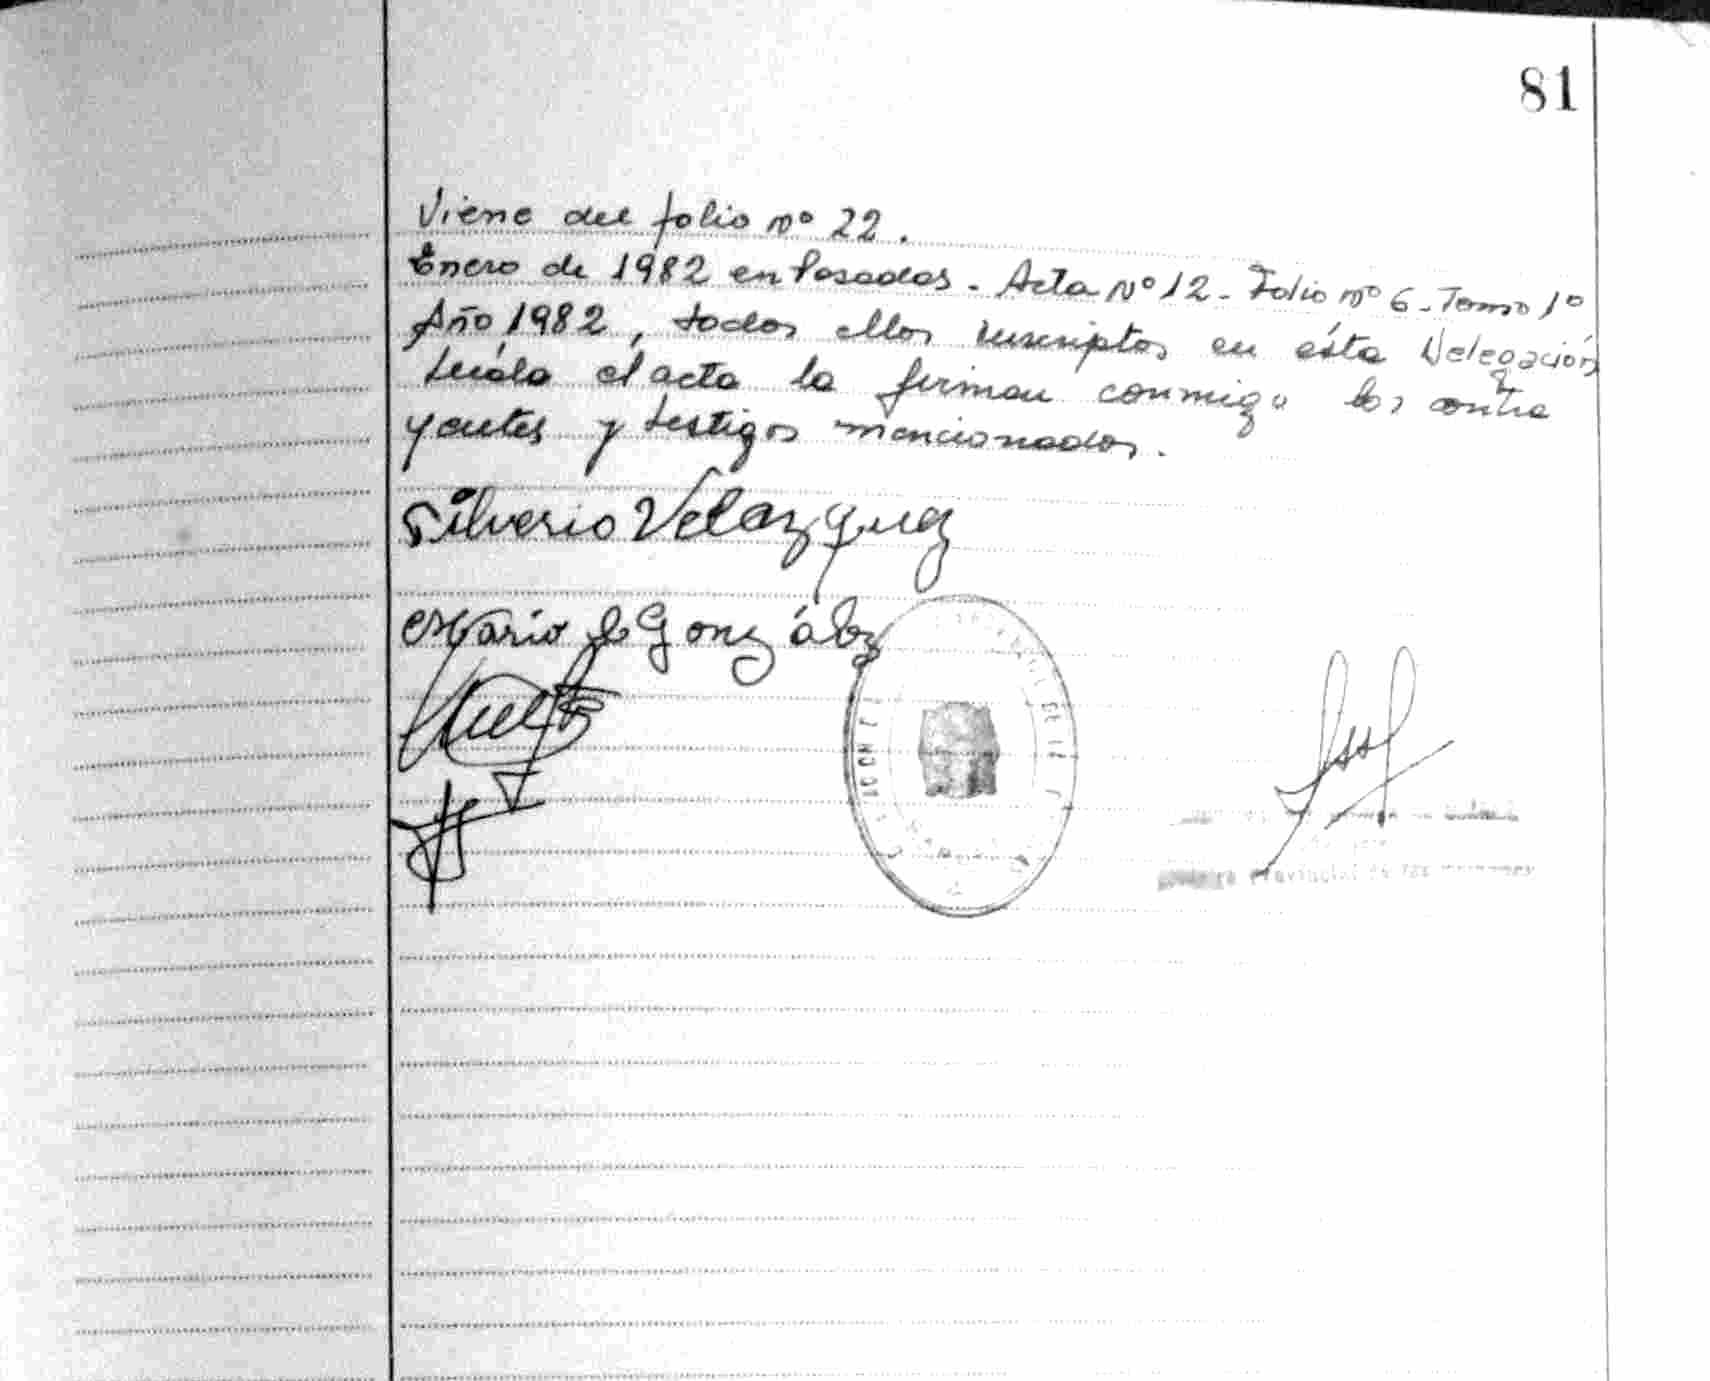 81
Viene del folio nº 22.
Enero de 1982 en Posadas. Acta Nº 12 - Folio nº 6 - Tomo 1º
Año 1982, todos ellos inscriptos en ésta Delegación
Leída el acta la firman conmigo los contra
yentes y testigos mencionados.
Silverio Velazquez
Mario González
Provincial de las